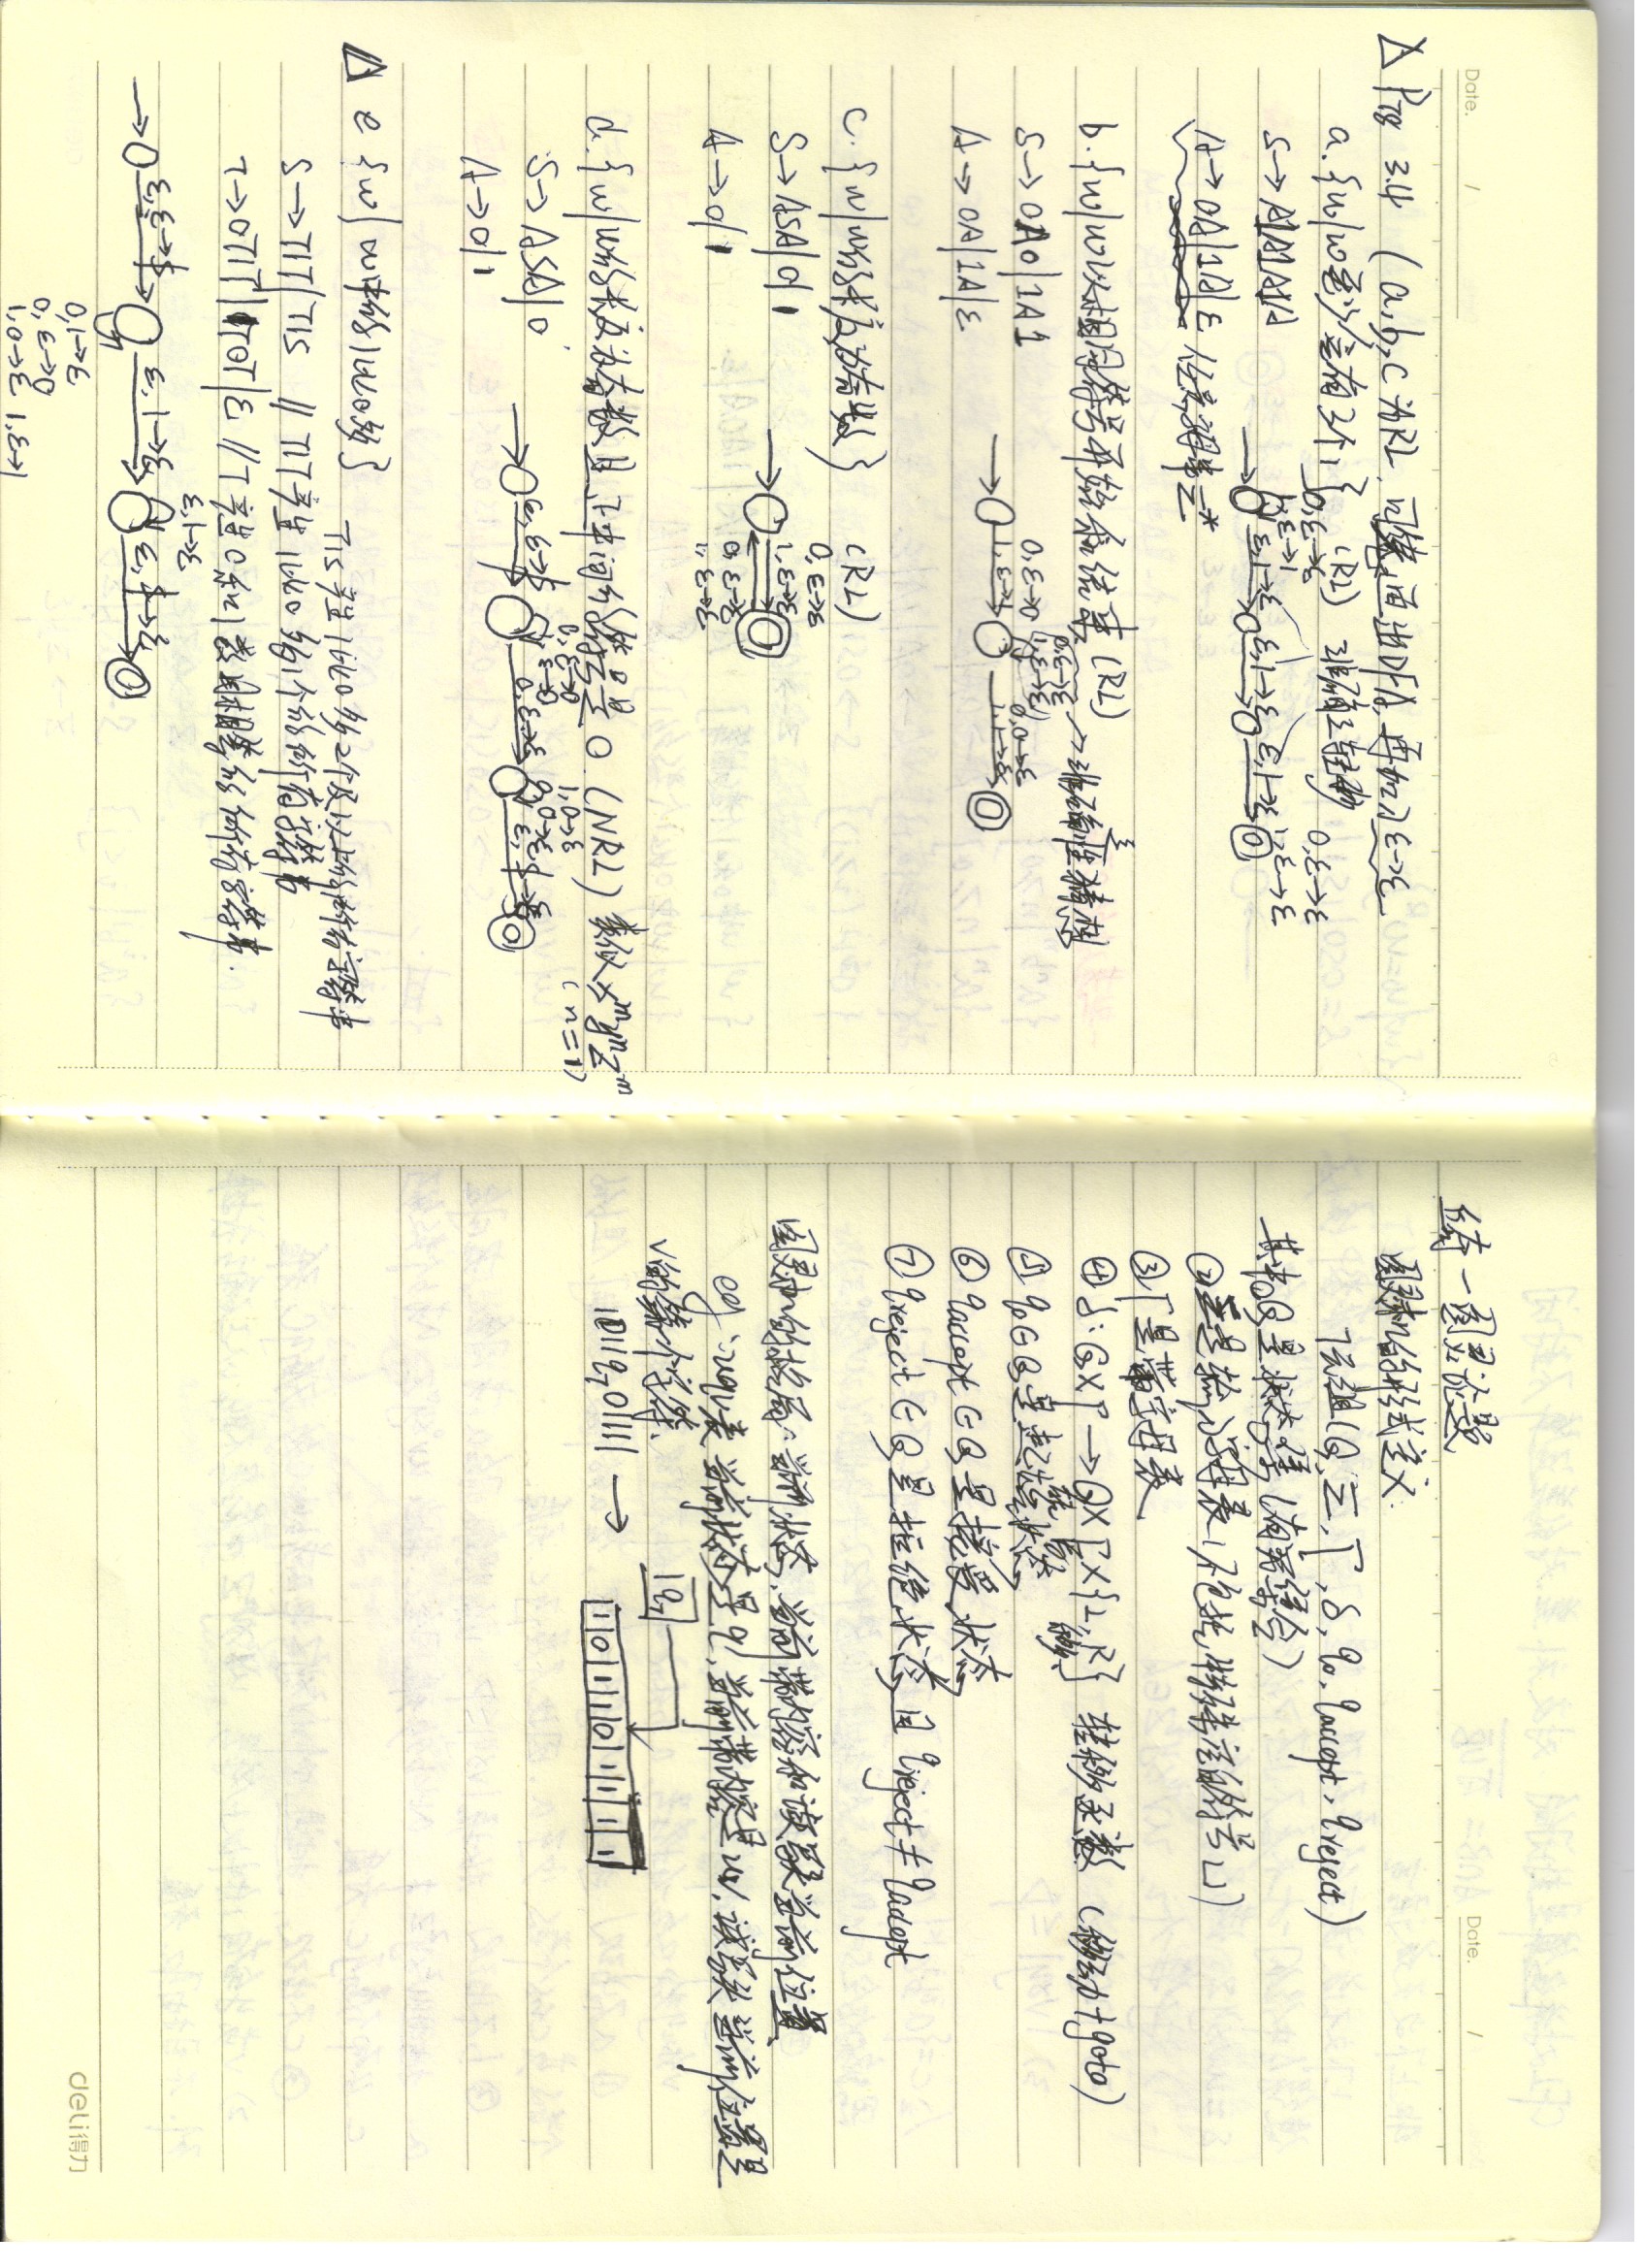 Date. /
△ P78 3.4 (a,b,c为RL, 可先画出DFA, 再加入ε→ε
a. {w|w至少含有3个1} (RL) 非确定转移
0,ε→ε
1,ε→1
0,ε→ε
1,ε→ε
S→A1A1A1A
ε,1→ε ε,1→ε ε,1→ε
A→0A|1A|ε 任意字母串Σ*
b. {w|w以相同符号开始和结束} (RL) →非确定性猜想
0,ε→ε
1,ε→ε
S→0A0|1A1
0,ε→0
1,ε→1
0,0→ε
1,1→ε
A→0A|1A|ε
c. {w|w的长度为奇数} (RL)
0,ε→ε
1,ε→ε
S→ASA|0|1
0,ε→ε
1,ε→ε
A→0|1
d. {w|w的长度为奇数且正中间的符号是0. (NRL) 类似x^m y^n z^m
(n=1)
0,ε→0
1,ε→0
1,0→ε
0,0→ε
S→ASA|0
ε,ε→$ 0,ε→ε ε,$→ε
A→0|1
△ e {w|w中的1比0多}
T1S产生1比0多2个及以上的所有字符串
S→T1T|T1S // T1T产生1比0多1个的所有字符串
T→0T1T|1T0T|ε // T产生0和1数目相等的所有字符串.
ε,1→ε
ε,ε→$ ε,1→ε ε,$→ε
0,1→ε
0,ε→0
1,0→ε 1,ε→1
Date. /
丘奇—图灵论题
图灵机的形式定义:
7元组(Q,Σ,Γ,δ,q0,qaccept,qreject)
其中①Q是状态集(有穷集合)
②Σ是输入字母表(不包括特殊空白符号⊔)
③Γ是带字母表
④δ:Q×Γ→Q×Γ×{L,R} 转移函数 (移动+goto)
状 写 移
⑤q0∈Q是起始状态
⑥qaccept∈Q是接受状态
⑦qreject∈Q是拒绝状态且qreject≠qaccept
图灵机的格局:当前状态,当前带内容和读写头当前位置
eg:uqv表当前状态是q,当前带内容是uv,读写头当前位置是
v的第一个字符.
q7
1011q701111 → 1 0 1 1 0 1 1 1 1
deli得力